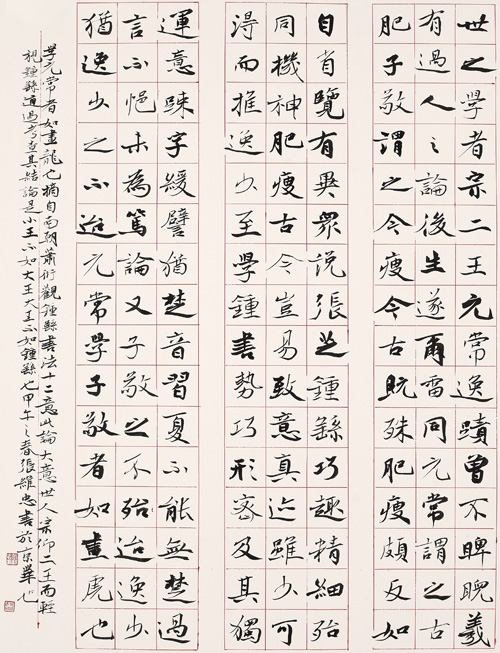 世之學者宗二王元常逸蹟曾不睥睨羲
有過人之論後生遂爾雷同元常謂之古
肥子敬謂之今瘦今古既殊肥瘦頗反如
自省覽有異衆說張芝鍾繇巧趣精細殆
同機神肥瘦古今豈易致意真迹雖少可
得而推逸少至學鍾書勢巧形密及其獨
運意疎字緩譬猶楚音習夏不能無楚過
言不悒未為篤論又子敬之不殆迨逸少
猶逸少之不迨元常學子敬者如畫虎也
學元常者如畫龍也摘自南朝蕭衍觀鍾繇書法十二意此論大意世人宗仰二王而輕
視鍾繇通過考查其結論是小王不如大王大王不如鍾繇也甲午之春張維忠書於京華